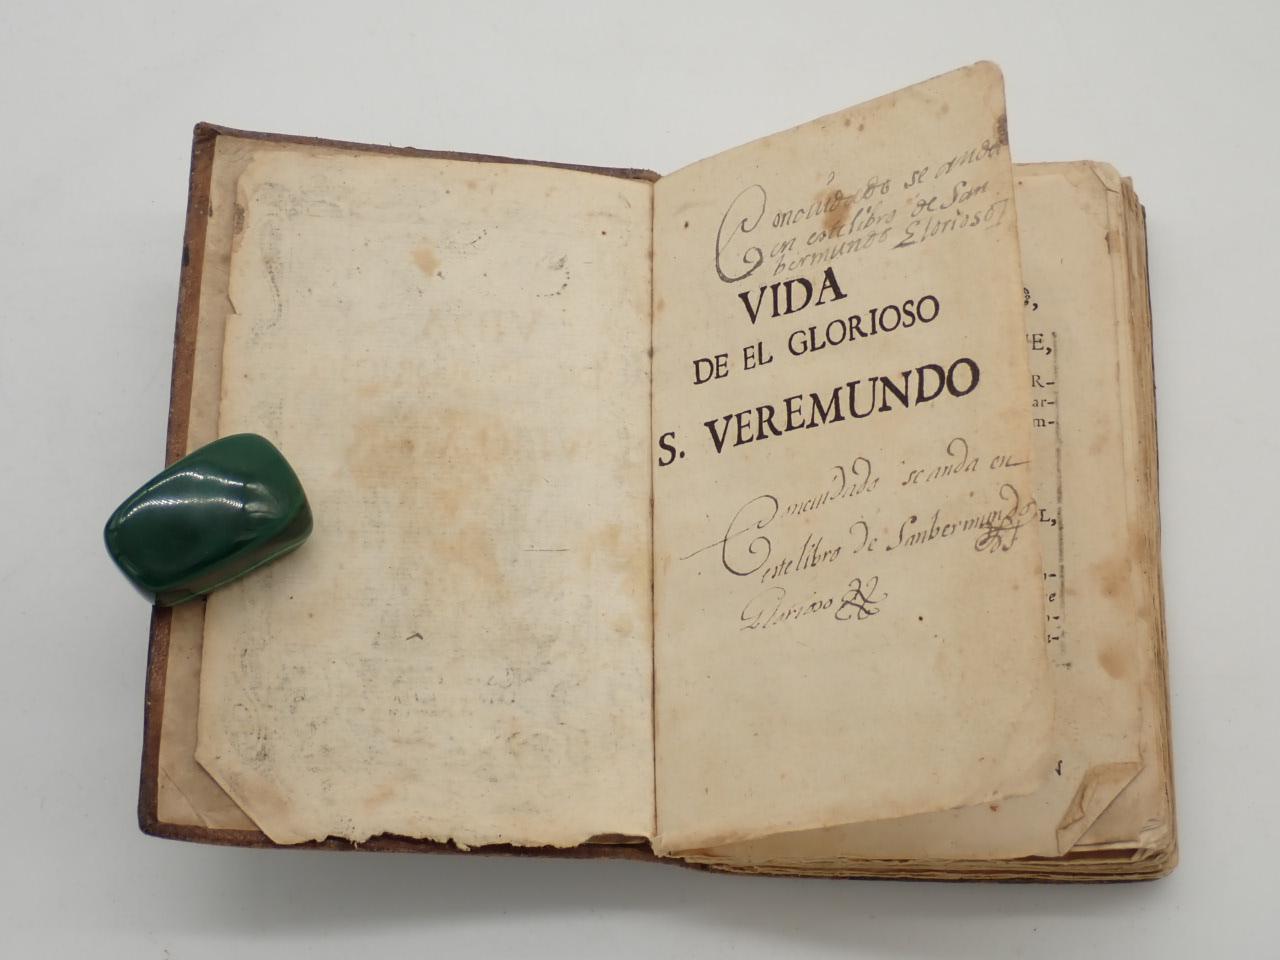 Concuidado se anda
en este libro de San
bermundo Glorioso
VIDA
DE EL GLORIOSO
S. VEREMUNDO
Concuidado se anda en
este libro de Sanbermundo
Glorioso
E,
R-
ar-
m-
L,